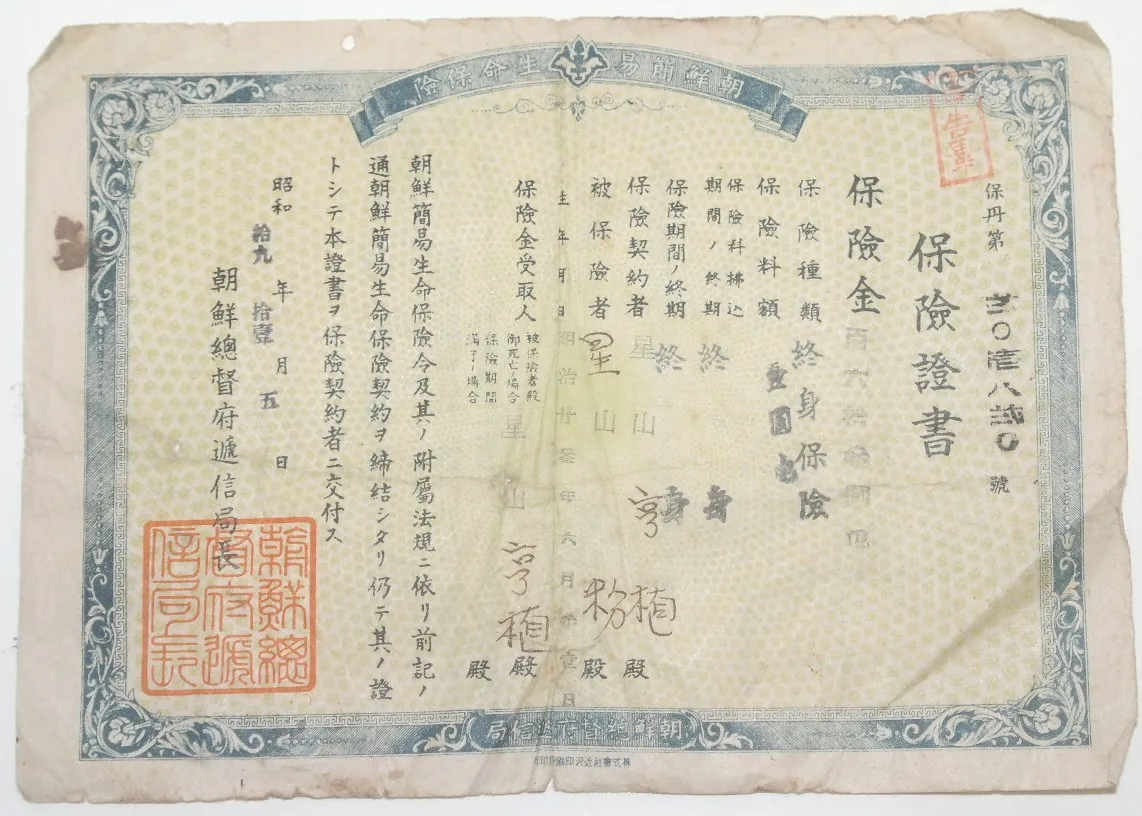 朝鮮簡易生命保險
保丹第
號
保險證書
保險金
保險種類 終身保險
保險料額 壹圓
保險料拂込期間ノ終期 終身
保險期間ノ終期 終身
保險契約者 星山亨植 殿
被保險者 星山 殿
生年月日 明治廿參年六月 壹日
保險金受取人
被保險者殿
御死亡ノ場合
保險期間
滿了ノ場合
星山亨植 殿
殿
朝鮮簡易生命保險令及其ノ附屬法規ニ依リ前記ノ
通朝鮮簡易生命保險契約ヲ締結シタリ仍テ其ノ證
トシテ本證書ヲ保險契約者ニ交付ス
昭和拾九年拾壹月五日
朝鮮總督府遞信局長
朝鮮總督府遞信局長
朝鮮總督府遞信局